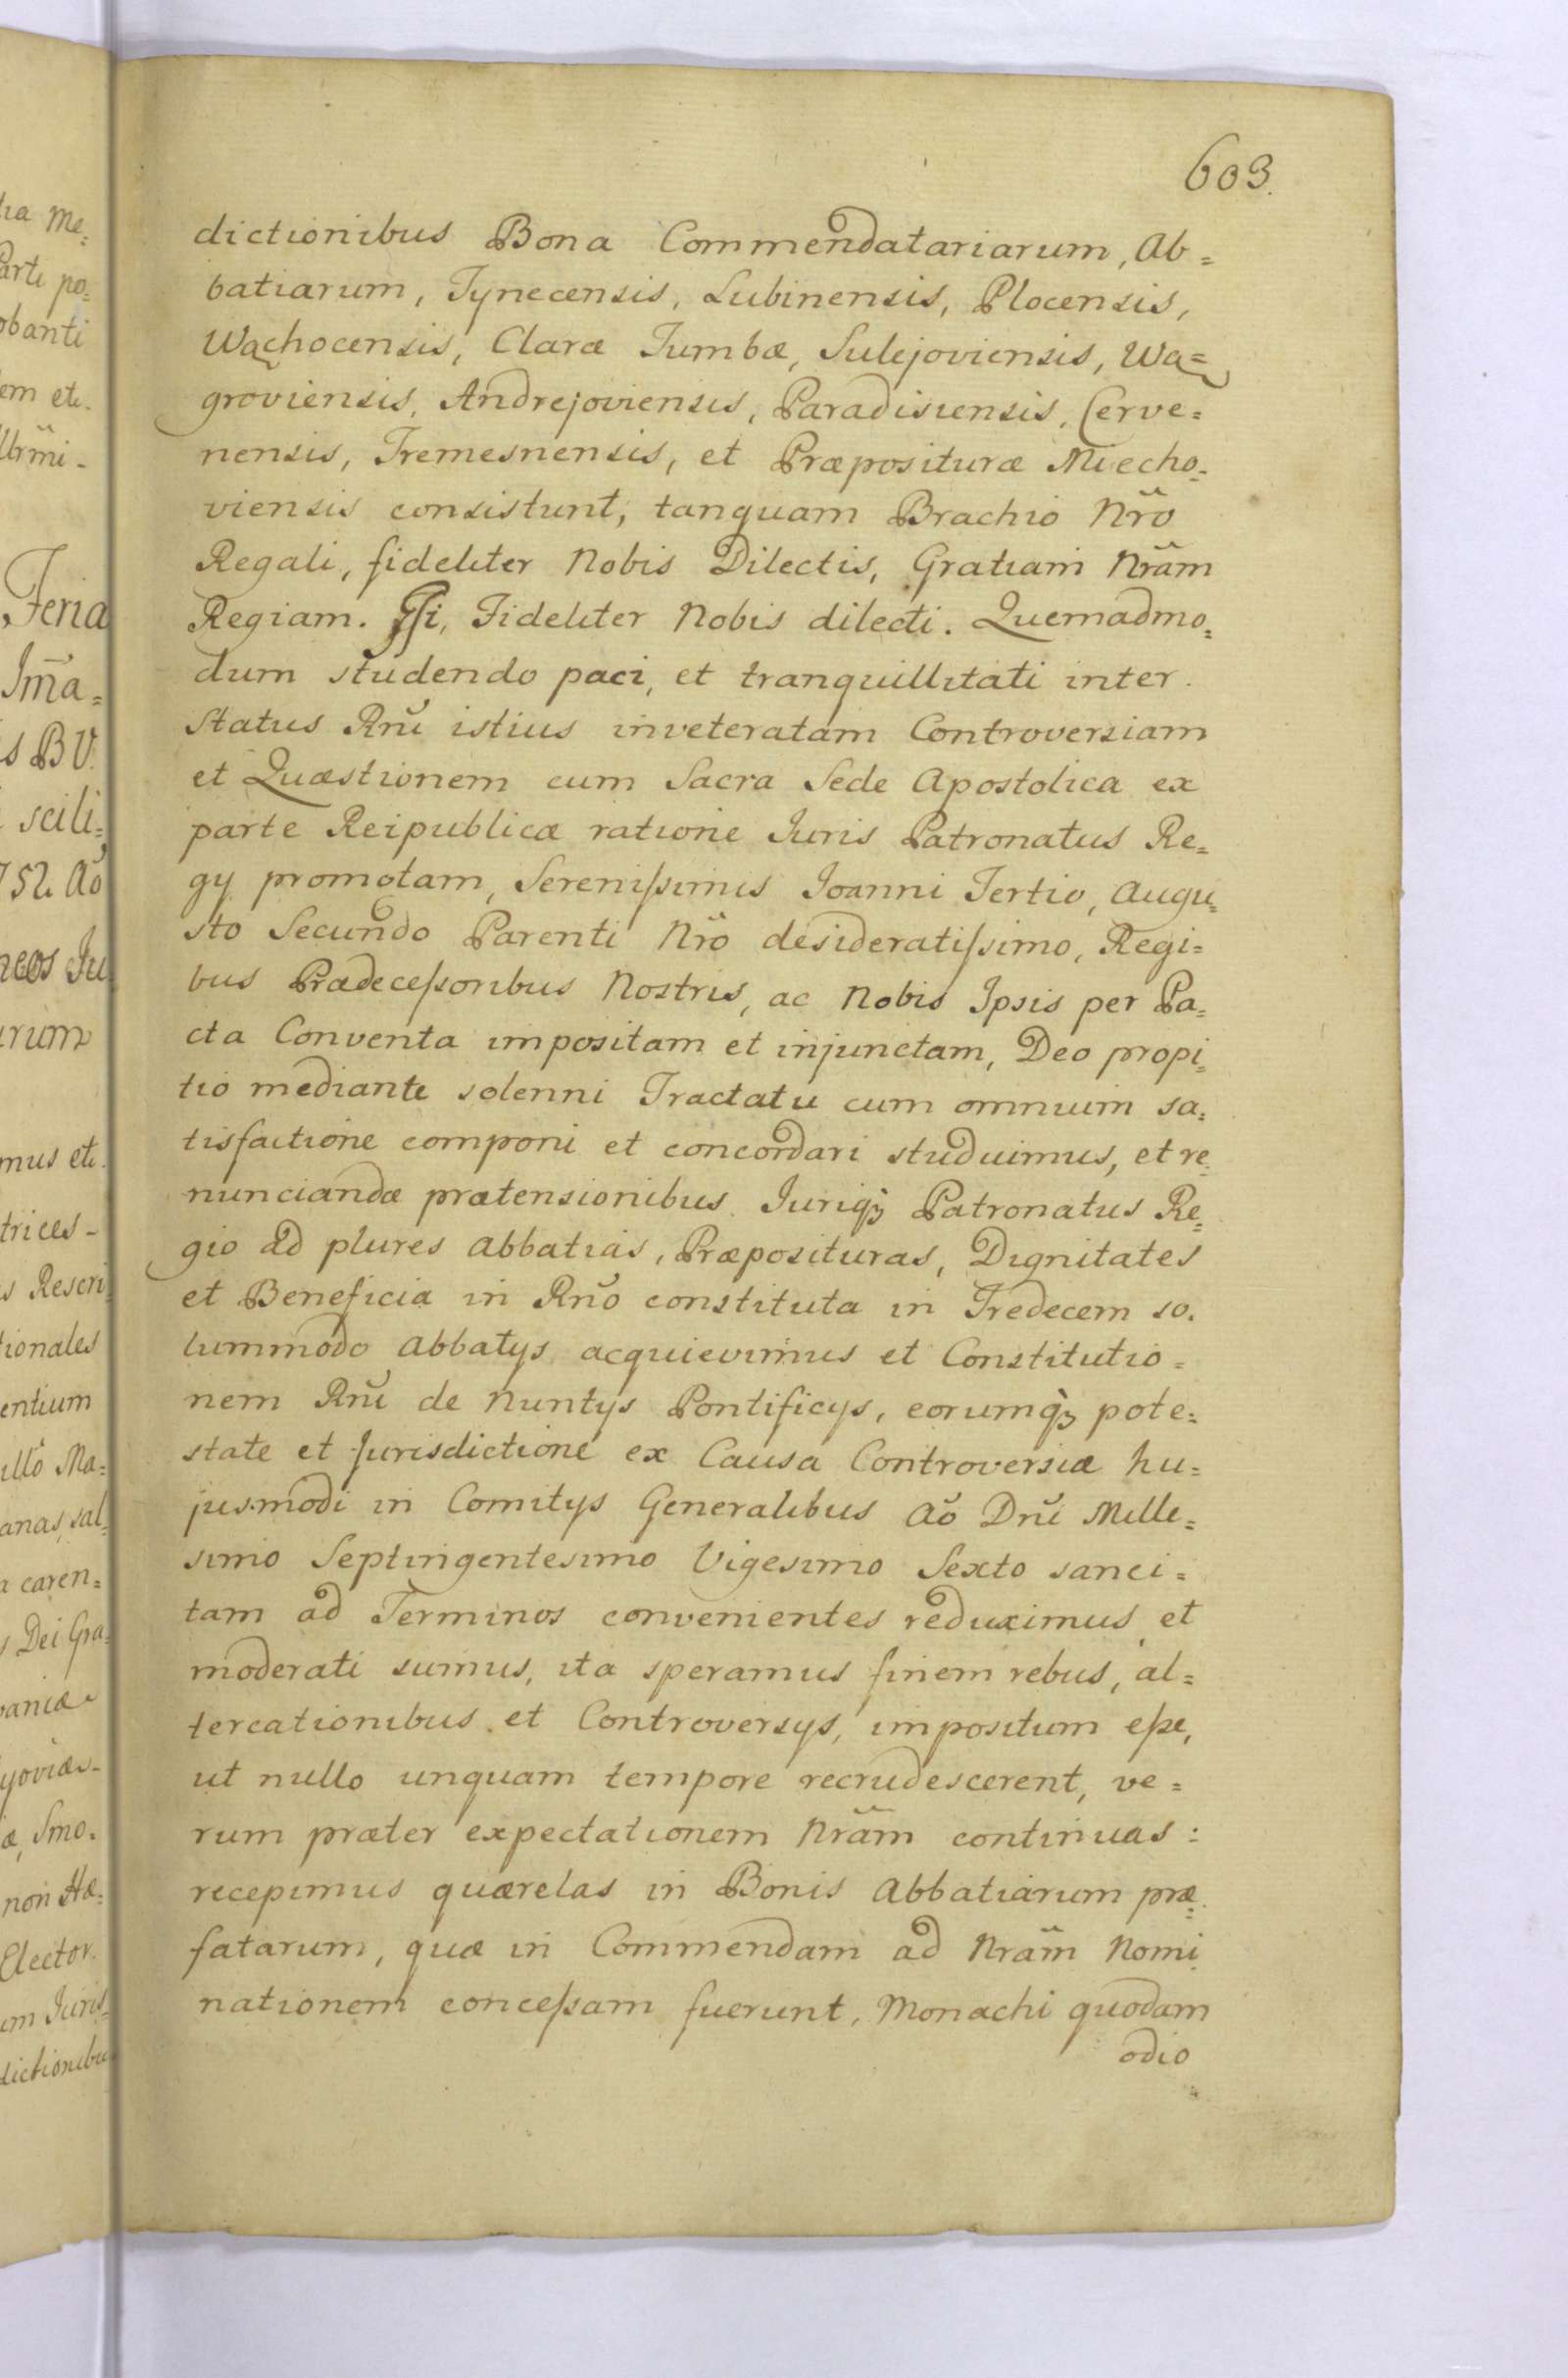 603.
dictionibus Bona Commendatariarum, Ab=
batiarum, Tynecensis, Lubinensis, Plocensis,
Wąchocensis, Claræ Tumbæ, Sulejoviensis, Wą=
groviensis, Andrejoviensis, Paradisiensis, Cerve=
nensis, Tremesnensis, et Præposituræ Miecho=
viensis consistunt, tanquam Brachio Nr̃o
Regali, fideliter Nobis Dilectis, Gratiam Nrãm
Regiam. Gſi, Fideliter Nobis dilecti. Quemadmo=
dum studendo paci, et tranquillitati inter
Status Rnĩ istius inveteratam Controversiam
et Quæstionem cum Sacra Sede Apostolica ex
parte Reipublicæ ratione Juris Patronatus Re=
gÿ promotam, Sereniſsimis Joanni Tertio, Augu=
sto Secundo Parenti Nr̃o desideratiſsimo, Regi=
bus Prædeceſsoribus Nostris, ac Nobis Ipsis per Pa=
cta Conventa impositam et injunctam, Deo propi=
tio mediante solenni Tractatu cum omnium sa=
tisfactione componi et concordari studuimus, et re=
nunciandæ prætensionibus Juriqꝫ Patronatus Re=
gio ad plures Abbatias, Præposituras, Dignitates
et Beneficia in Rnõ constituta in Tredecem so=
lummodo Abbatÿs acquievimus et Constitutio=
nem Rnĩ de Nuntÿs Pontificÿs, eorumqꝫ pote=
state et Jurisdictione ex Causa Controversiæ hu=
jusmodi in Comitÿs Generalibus Aõ Dnĩ Mille=
simo Septingentesimo Vigesimo Sexto sanci=
tam ad Terminos convenientes reduximus et
moderati sumus, ita speramus finem rebus, al=
tercationibus et Controversÿs, impositum eſse,
ut nullo unquam tempore recrudescerent, ve=
rum præter expectationem Nrãm continuas:
recepimus quærelas in Bonis Abbatiarum præ=
fatarum, quæ in Commendam ad Nrãm Nomi
nationem conceſsam fuerunt, Monachi quodam
odio